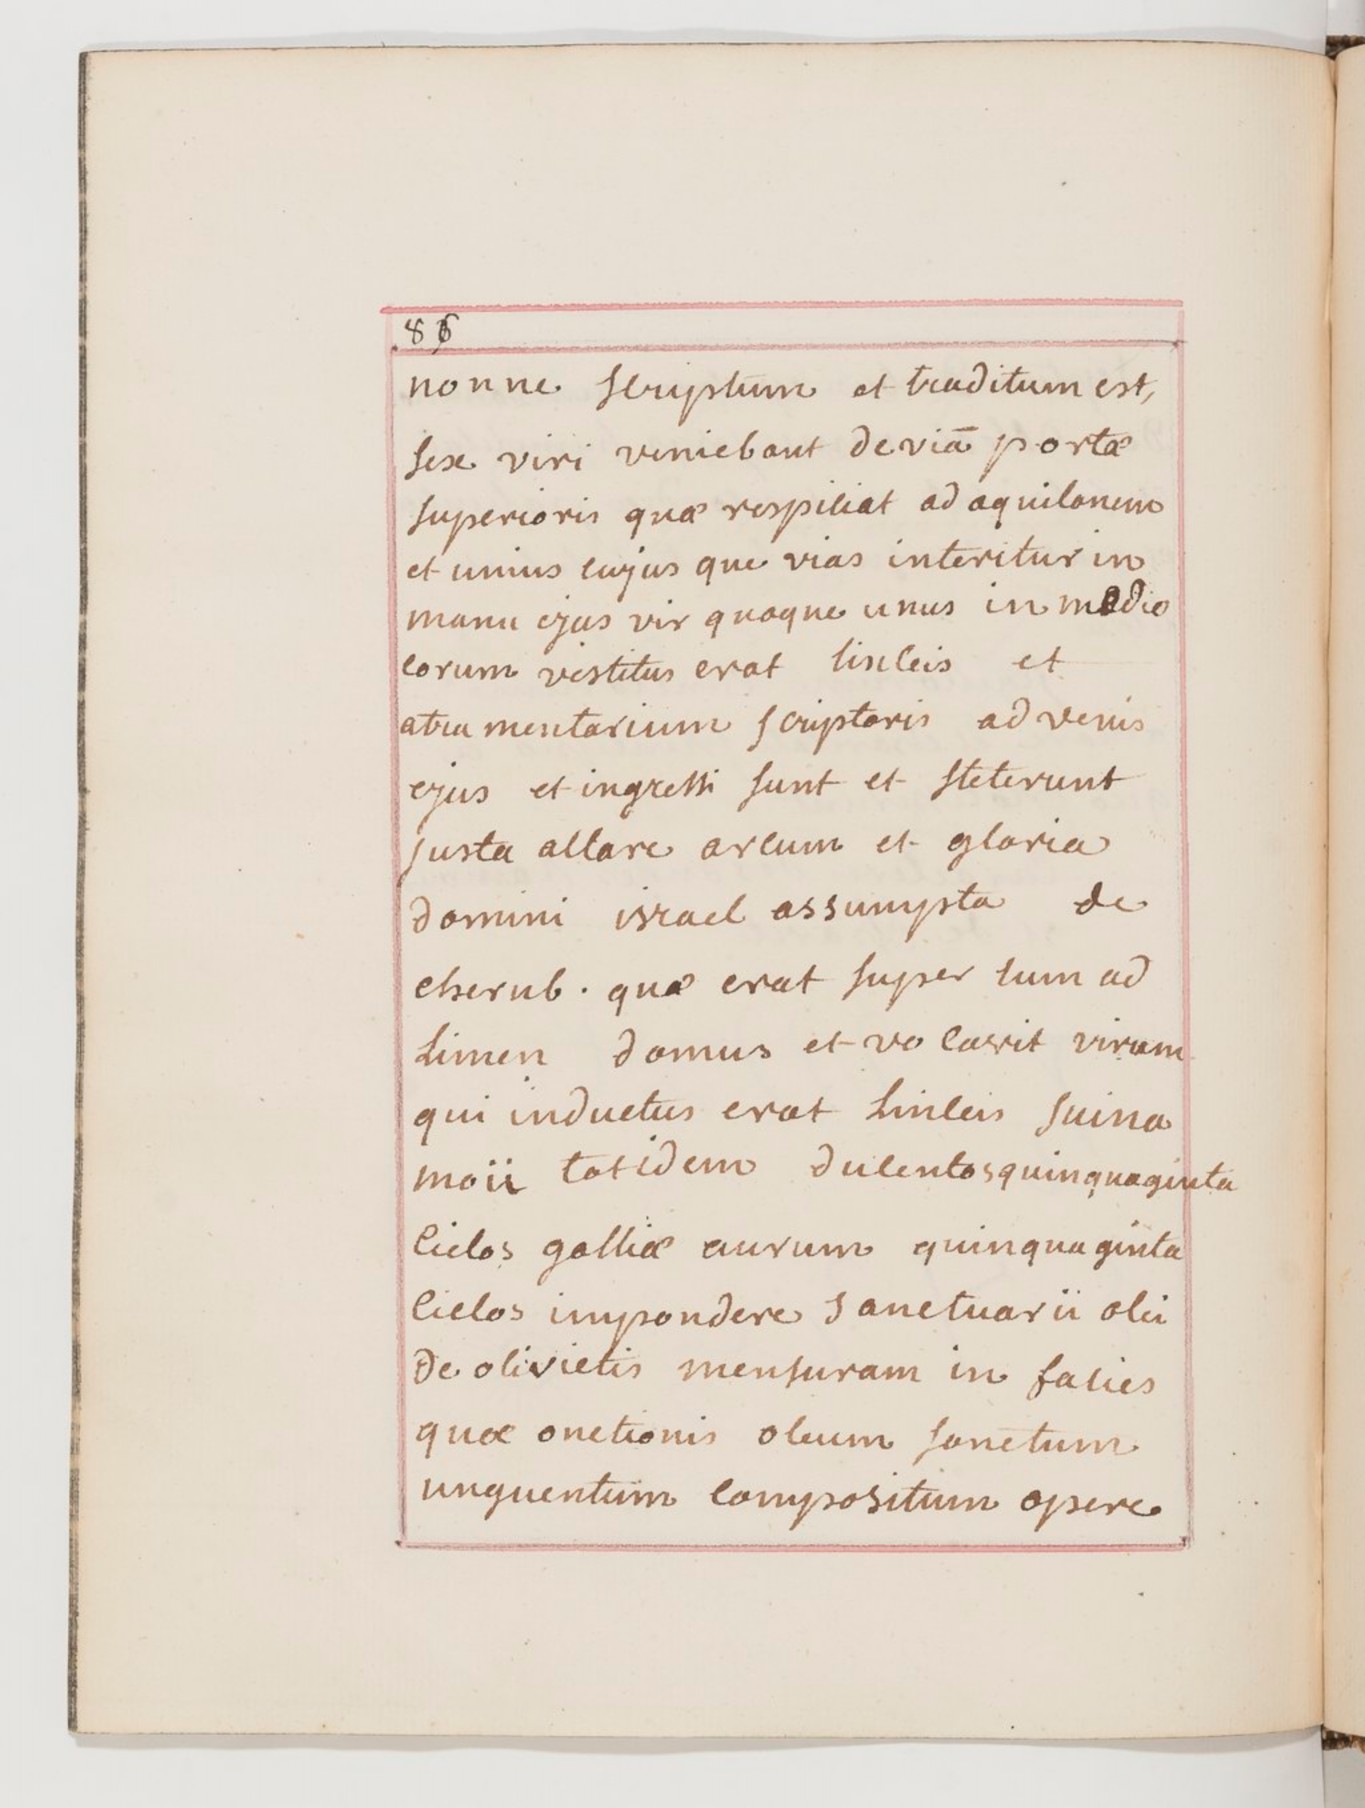 86
nonne scriptum et traditum est,
sex viri veniebant de viā portæ
superioris quæ respiciat ad aquilonem
et unius cujus que vias interitur in
manu ejus vir quoque unus in medio
eorum vestitus erat lincleis et
atra mentarium scriptoris ad venis
ejus et ingressi sunt et steterunt
justa altare arcum et gloria
domini israel assumpta de
cherub. quæ erat super cum ad
limen domus et vo cavit virum
qui inductus erat linleis suina
moii totidem ducentos quinquaginta
ciclos galliæ aurum quinquaginta
ciclos impondere sanctuarii olei
de olivietis mensuram in facies
quæ onctionis oleum sanctum
unguentum compositum opere